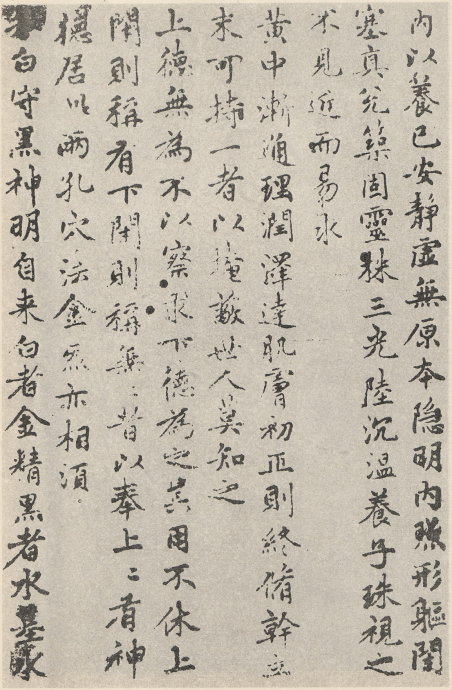 内以養己安靜虛無原本隐明内照形軀閇
塞真兊築固靈株三光陸沉温養子珠視之
不見近而易求
黄中漸通理潤澤達肌膚初正則終脩幹立
末可持一者以掩蔽世人莫知之
上德無為不以察求下德為之其用不休上
閇則稱有下閇則稱無〻者以奉上〻有神
德居此兩孔穴法金炁亦相須
白守黑神明自来白者金精黑者水基水